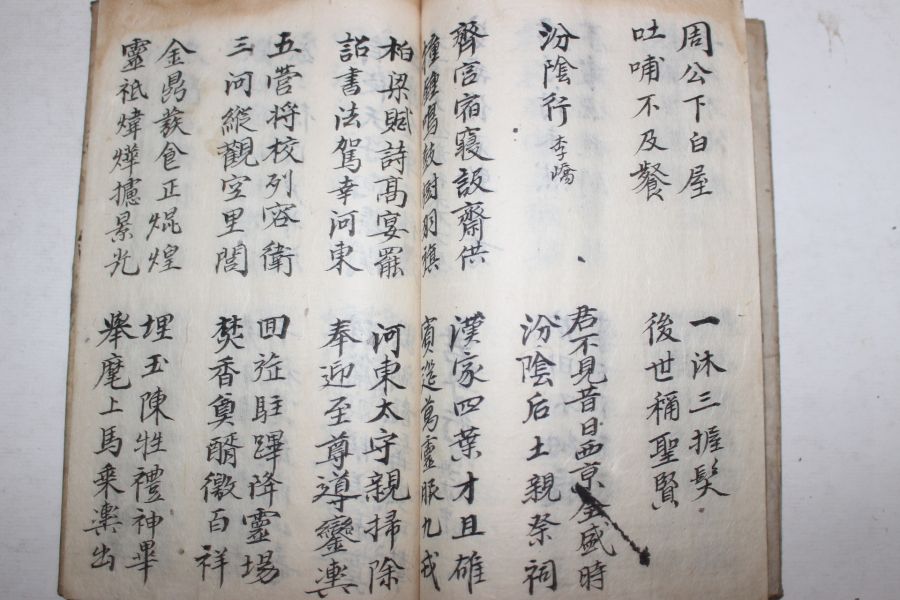 周公下白屋
吐哺不及餐
一沐三握髮
後世稱聖賢
汾陰行 李嶠
君不見昔日西京全盛時
汾陰后土親祭祠
齊宮宿寢設齋供
撞鐘鳴鼓樹羽旗
漢家四葉才且雄
賓筵萬靈服九戎
柏梁賦詩高宴罷
詔書法駕幸河東
河東太守親掃除
奉迎至尊導鑾輿
五營將校列容衛
三河縱觀空里閭
回旌駐蹕降靈場
焚香奠醑徼百祥
金鼎發食正焜煌
靈祇煒燁攄景光
埋玉陳牲禮神畢
舉麾上馬乘輿出